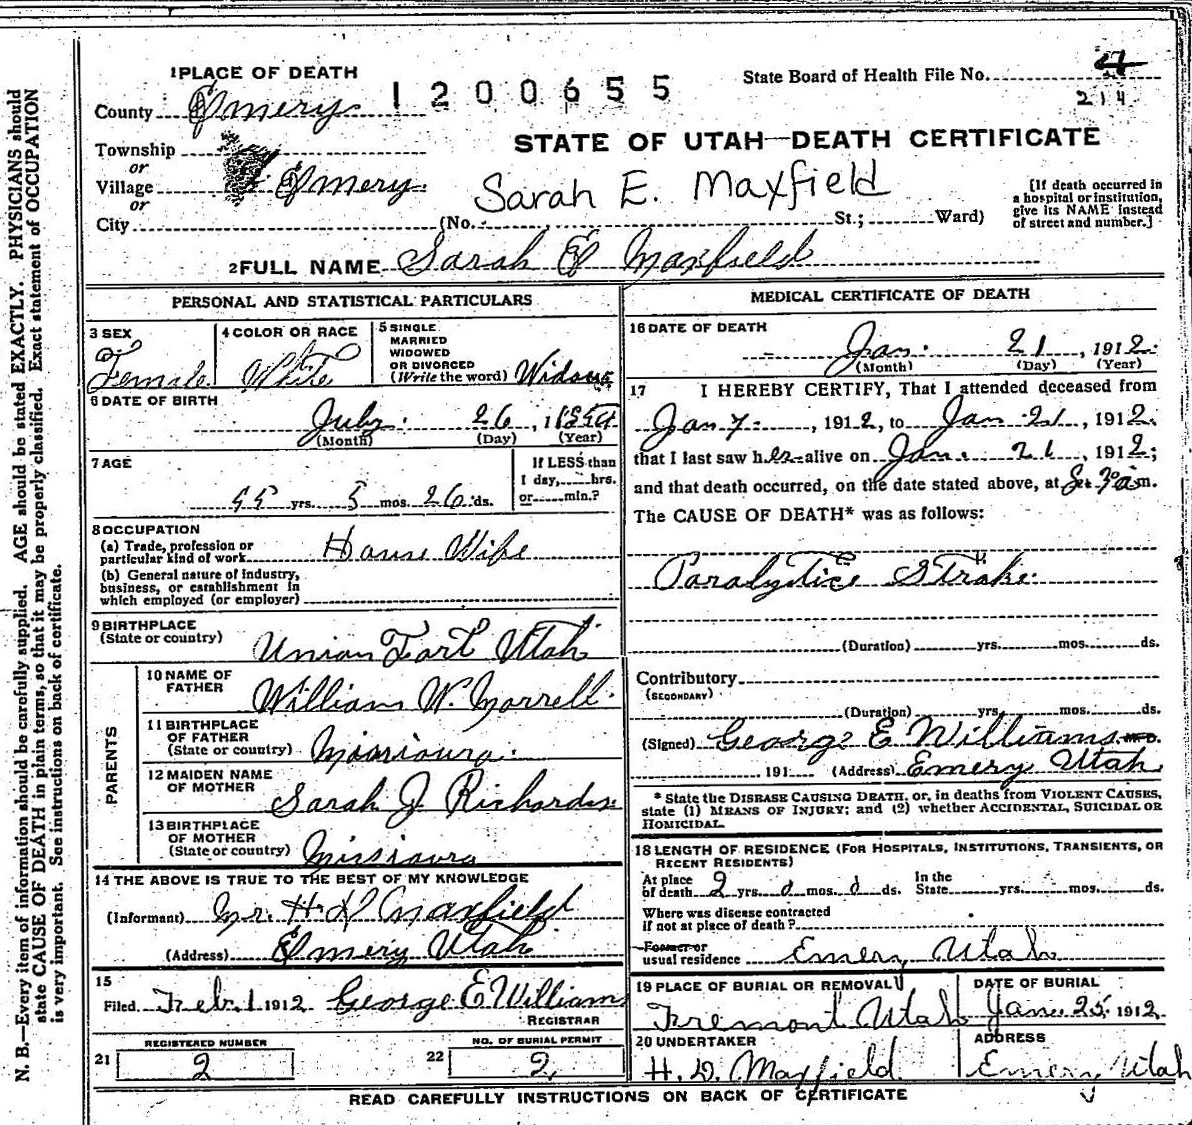 1 PLACE OF DEATH
1200655
State Board of Health File No. 4
214
County Emery
STATE OF UTAH—DEATH CERTIFICATE
Township
or
Village Emery
or
City
Sarah E. Maxfield
(No. St.; Ward)
[If death occurred in
a hospital or institution,
give its NAME instead
of street and number.]
2 FULL NAME Sarah E Maxfield
PERSONAL AND STATISTICAL PARTICULARS
3 SEX
Female
4 COLOR OR RACE
White
5 SINGLE
MARRIED
WIDOWED
OR DIVORCED
(Write the word) Widow
6 DATE OF BIRTH
July 26, 1
(Month) (Day) (Year)
7 AGE
55 yrs. 5 mos. 26 ds.
If LESS than
1 day, hrs.
or min.?
8 OCCUPATION
(a) Trade, profession or
particular kind of work House Wife
(b) General nature of industry,
business, or establishment in
which employed (or employer)
9 BIRTHPLACE
(State or country) Union Fort Utah
PARENTS
10 NAME OF
FATHER William W. Morrell
11 BIRTHPLACE
OF FATHER
(State or country) Missioura
12 MAIDEN NAME
OF MOTHER Sarah J Richards
13 BIRTHPLACE
OF MOTHER
(State or country) Missioura
14 THE ABOVE IS TRUE TO THE BEST OF MY KNOWLEDGE
(Informant) Mr. H. D Maxfield
(Address) Emery Utah
15
Filed Feb. 1 1912 George E Williams
REGISTRAR
21 REGISTERED NUMBER
2
22 NO. OF BURIAL PERMIT
2
MEDICAL CERTIFICATE OF DEATH
16 DATE OF DEATH
Jan. 21, 1912.
(Month) (Day) (Year)
17 I HEREBY CERTIFY, That I attended deceased from
Jan 7, 1912, to Jan 21, 1912.
that I last saw her alive on Jan. 21, 1912;
and that death occurred, on the date stated above, at m.
The CAUSE OF DEATH* was as follows:
Paralytice Stroke.
(Duration) yrs. mos. ds.
Contributory
(SECONDARY)
(Duration) yrs. mos. ds.
(Signed) George E Williams M.D.
191 (Address) Emery Utah
* State the DISEASE CAUSING DEATH, or, in deaths from VIOLENT CAUSES,
state (1) MEANS OF INJURY; and (2) whether ACCIDENTAL, SUICIDAL OR
HOMICIDAL.
18 LENGTH OF RESIDENCE (FOR HOSPITALS, INSTITUTIONS, TRANSIENTS, OR
RECENT RESIDENTS)
At place
of death 2 yrs. 0 mos. 0 ds.
In the
State yrs. mos. ds.
Where was disease contracted
if not at place of death?
Former or
usual residence Emery Utah
19 PLACE OF BURIAL OR REMOVAL
Fremont Utah
DATE OF BURIAL
Jan. 25, 1912
20 UNDERTAKER
H. D. Maxfield
ADDRESS
Emery Utah
READ CAREFULLY INSTRUCTIONS ON BACK OF CERTIFICATE
N. B.—Every item of information should be carefully supplied. AGE should be stated EXACTLY. PHYSICIANS should
state CAUSE OF DEATH in plain terms, so that it may be properly classified. Exact statement of OCCUPATION
is very important. See instructions on back of certificate.